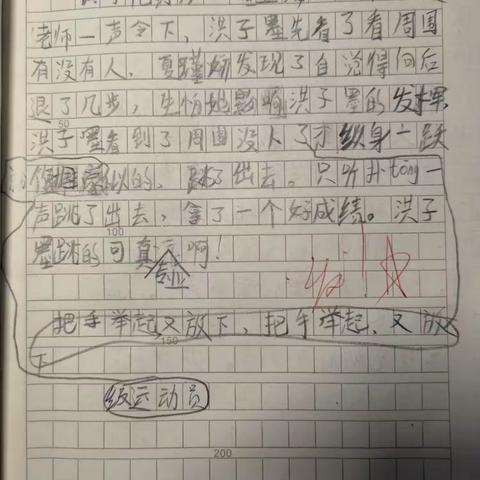 老师一声令下，洪子墨先看了看周围
有没有人。夏瑾妍发现了自觉得向后
退了几步，生怕她影响洪子墨的发挥
50
洪子墨看到了周围没人了才纵身一跃
似的，跳了出去。只听扑tōng一
声跳了出去，拿了一个好成绩。洪子
100
墨跳的可真 啊！
专业
把手举起又放下，把手举起，又放
下
150
级运动员
200